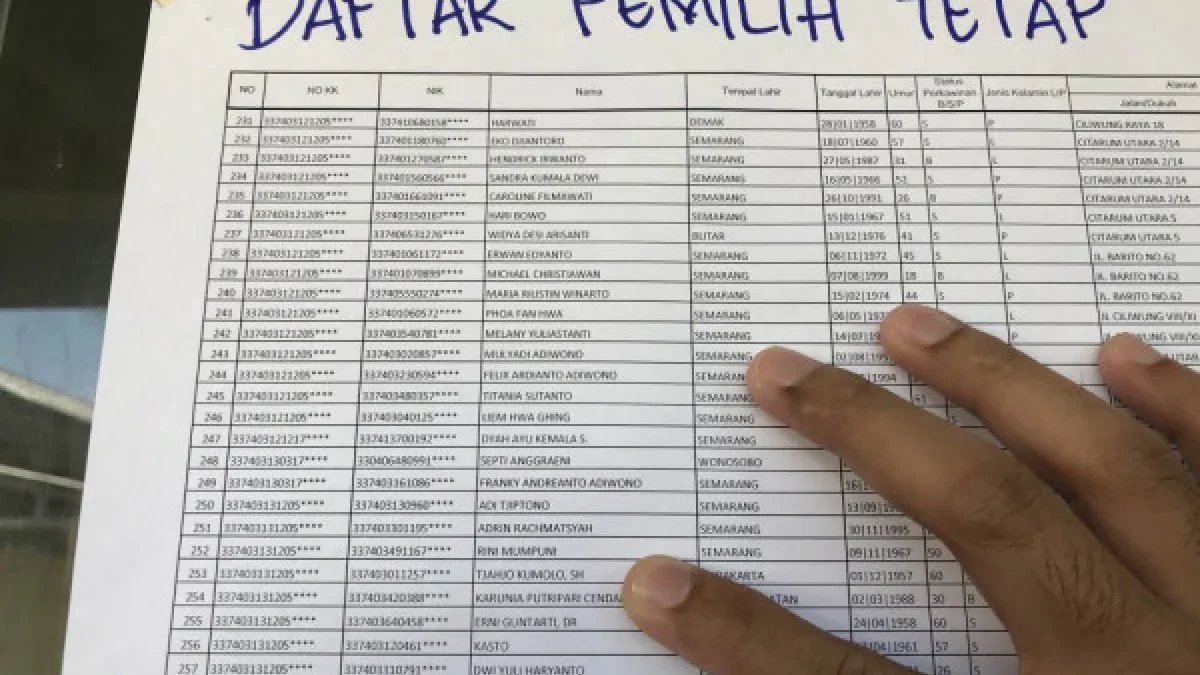 DAFTAR PEMILIH TETAP
NO NO KK NIK Nama Tempat Lahir Tanggal Lahir Umur Status Perkawinan B/S/P Jenis Kelamin L/P Alamat
Jalan/Dukuh
231 337403121205**** 337410680158**** HARWATI DEMAK 28|01|1958 60 S P CILIWUNG RAYA 18
232 337403121205**** 337401180760**** EKO DJIANTORO SEMARANG 18|07|1960 57 S L CITARUM UTARA 2/14
233 337403121205**** 337401270587**** HENDRICK IRWANTO SEMARANG 27|05|1987 31 B L CITARUM UTARA 2/14
234 337403121205**** 337401560566**** SANDRA KUMALA DEWI SEMARANG 16|05|1966 52 S P CITARUM UTARA 2/14
235 337403121205**** 337401661091**** CAROLINE FILMAWATI SEMARANG 26|10|1991 26 B P CITARUM UTARA 2/14
236 337403121205**** 337403150167**** HARI BOWO SEMARANG 15|01|1967 51 S L CITARUM UTARA 5
237 337403121205**** 337406531276**** WIDYA DESI ARISANTI BLITAR 13|12|1976 41 S P CITARUM UTARA 5
238 337403121205**** 337401061172**** ERWAN EDYANTO SEMARANG 06|11|1972 45 S L JL. BARITO NO.62
239 337403121205**** 337401070899**** MICHAEL CHRISTIAWAN SEMARANG 07|08|1999 18 B L JL. BARITO NO.62
240 337403121205**** 337405550274**** MARIA RIUSTIN WINARTO SEMARANG 15|02|1974 44 S P JL. BARITO NO.62
241 337403121205**** 337401060572**** PHOA FAN HWA SEMARANG 06|05 L JL CILIWUNG VIII/XI
242 337403121205**** 337403540781**** MELANY YULIASTANTI SEMARANG P CILIWUNG
243 337403121205**** 337403020857**** MULYADI ADIWONO SEMARANG 02|08
244 337403121205**** 337403230594**** FELIX ARDIANTO ADIWONO 1994
245 337403121205**** 337403480357**** TITANIA SUTANTO SEMARANG 61
246 337403121205**** 337403040125**** LIEM HWA GHING SEMARANG S
247 337403121217**** 337413700192**** DYAH AYU KEMALA S. SEMARANG
248 337403130317**** 330406480991**** SEPTI ANGGRAENI WONOSOBO
249 337403130317**** 337403161086**** FRANKY ANDREANTO ADIWONO SEMARANG
250 337403131205**** 337403130960**** ADI TJIPTONO SEMARANG 13|09
251 337403131205**** 337403301195**** ADRIN RACHMATSYAH SEMARANG 30|11|1995
252 337403131205**** 337403491167**** RINI MUMPUNI SEMARANG 09|11|1967 50
253 337403131205**** 337403011257**** TJAHJO KUMOLO, SH 01|12|1957 60
254 337403131205**** 337403420388**** KARUNIA PUTRIPARI 02|03|1988 30 B
255 337403131205**** 337403640458**** ERNI GUNTARTI, DR 24|04|1958 60 S
256 337403131205**** 337403120461**** KASTO 04|1961 57 S
257 337403131205**** 337403310791**** DWI YULI HARYANTO 26 S